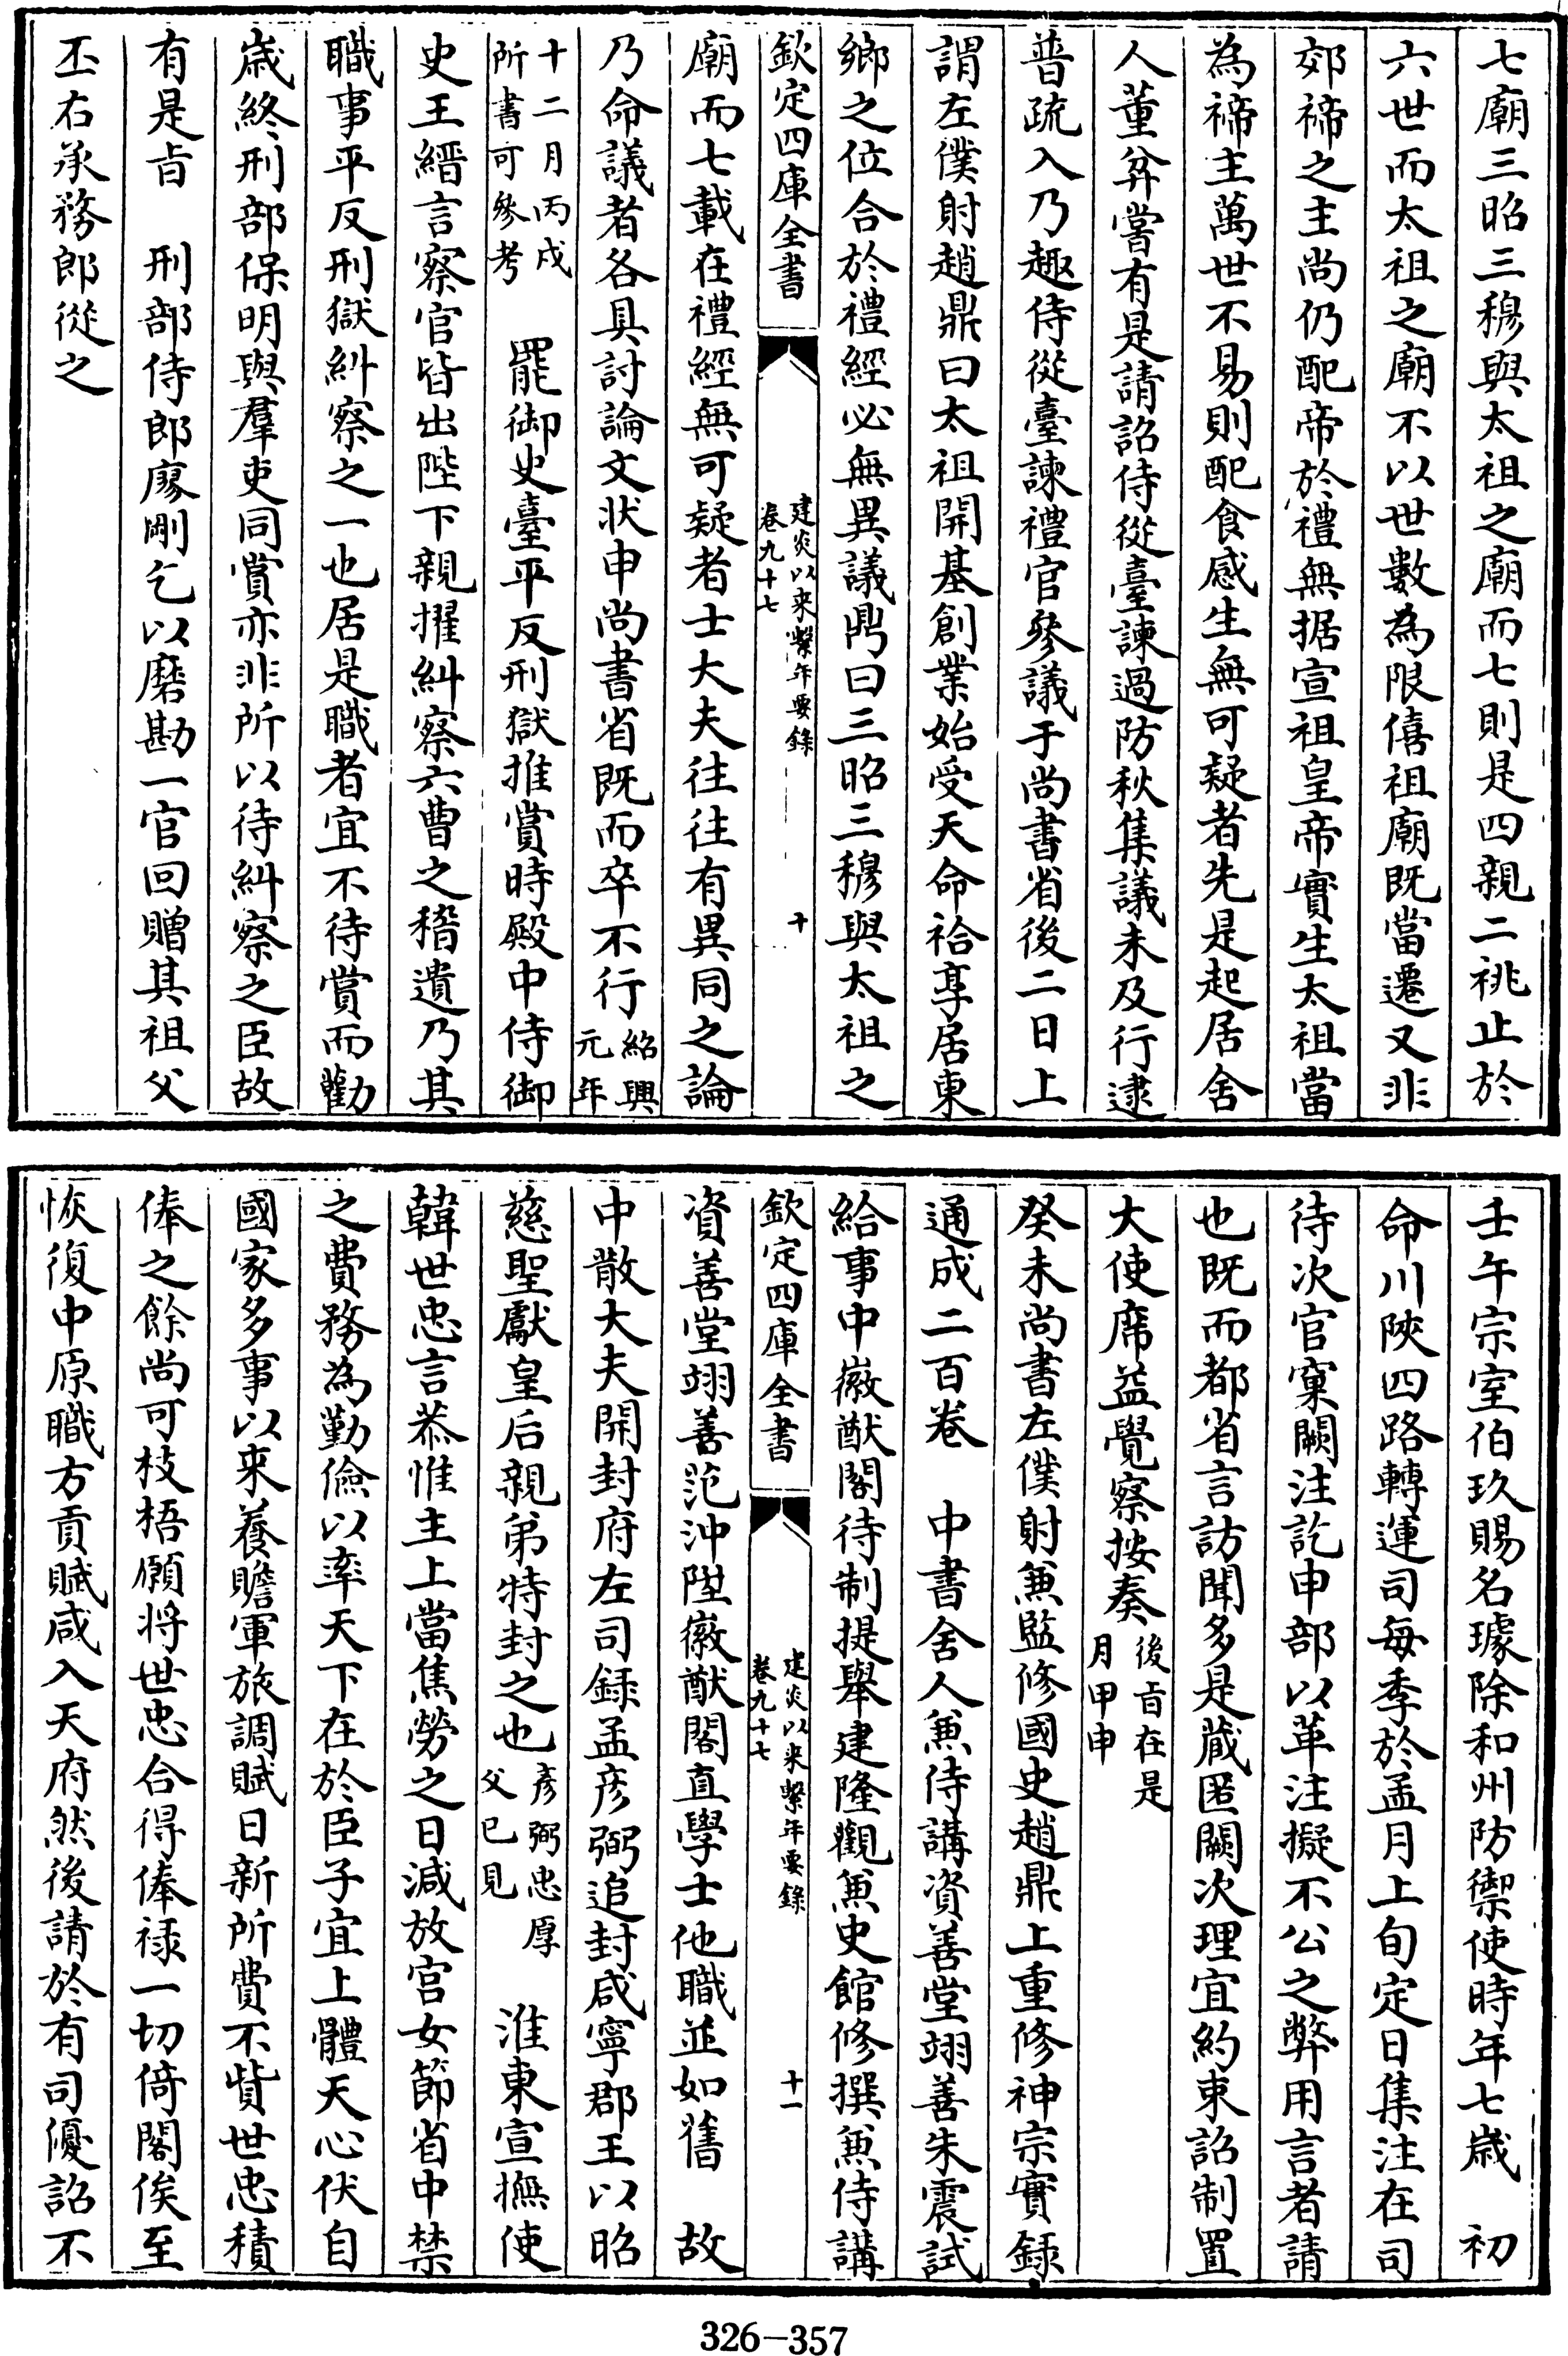 七廟三昭三穆與太祖之廟而七則是四親二祧止於
六世而太祖之廟不以世數為限僖祖廟既當遷又非
郊禘之主尚仍配帝於禮無据宣祖皇帝實生太祖當
為禘主萬世不易則配食感生無可疑者先是起居舍
人董弅嘗有是請詔侍從臺諫過防秋集議未及行逮
普疏入乃趣侍從臺諫禮官參議于尚書省後二日上
謂左僕射趙鼎曰太祖開基創業始受天命祫享居東
鄉之位合於禮經必無異議鼎曰三昭三穆與太祖之
欽定四庫全書
建炎以来繫年要錄
卷九十七
十
廟而七載在禮經無可疑者士大夫往往有異同之論
乃命議者各具討論文状申尚書省既而卒不行紹興元年
十二月丙戌所書可參考 罷御史臺平反刑獄推賞時殿中侍御
史王縉言察官皆出陛下親擢糾察六曹之稽遺乃其
職事平反刑獄糾察之一也居是職者宜不待賞而勸
歲終刑部保明與羣吏同賞亦非所以待糾察之臣故
有是旨 刑部侍郎廖剛乞以磨勘一官回贈其祖父
丕右承務郎從之
壬午宗室伯玖賜名璩除和州防禦使時年七歲 初
命川陝四路轉運司每季於孟月上旬定日集注在司
待次官窠闕注訖申部以革注擬不公之弊用言者請
也既而都省言訪聞多是蔵匿闕次理宜約束詔制置
大使席益覺察按奏後旨在是月甲申
癸未尚書左僕射兼監修國史趙鼎上重修神宗實録
通成二百卷 中書舍人兼侍講資善堂翊善朱震試
給事中徽猷閣待制提舉建隆觀兼史館修撰兼侍講
欽定四庫全書
建炎以来繫年要錄
卷九十七
十一
資善堂翊善范沖陞徽猷閣直學士他職並如舊 故
中散大夫開封府左司録孟彥弼追封咸寧郡王以昭
慈聖獻皇后親弟特封之也彥弼忠厚父已見 淮東宣撫使
韓世忠言恭惟主上當焦勞之日減放宮女節省中禁
之費務為勤儉以率天下在於臣子宜上體天心伏自
國家多事以来養贍軍旅調賦日新所費不貲世忠積
俸之餘尚可枝梧願将世忠合得俸禄一切倚閣俟至
恢復中原職方貢賦咸入天府然後請於有司優詔不
326-357